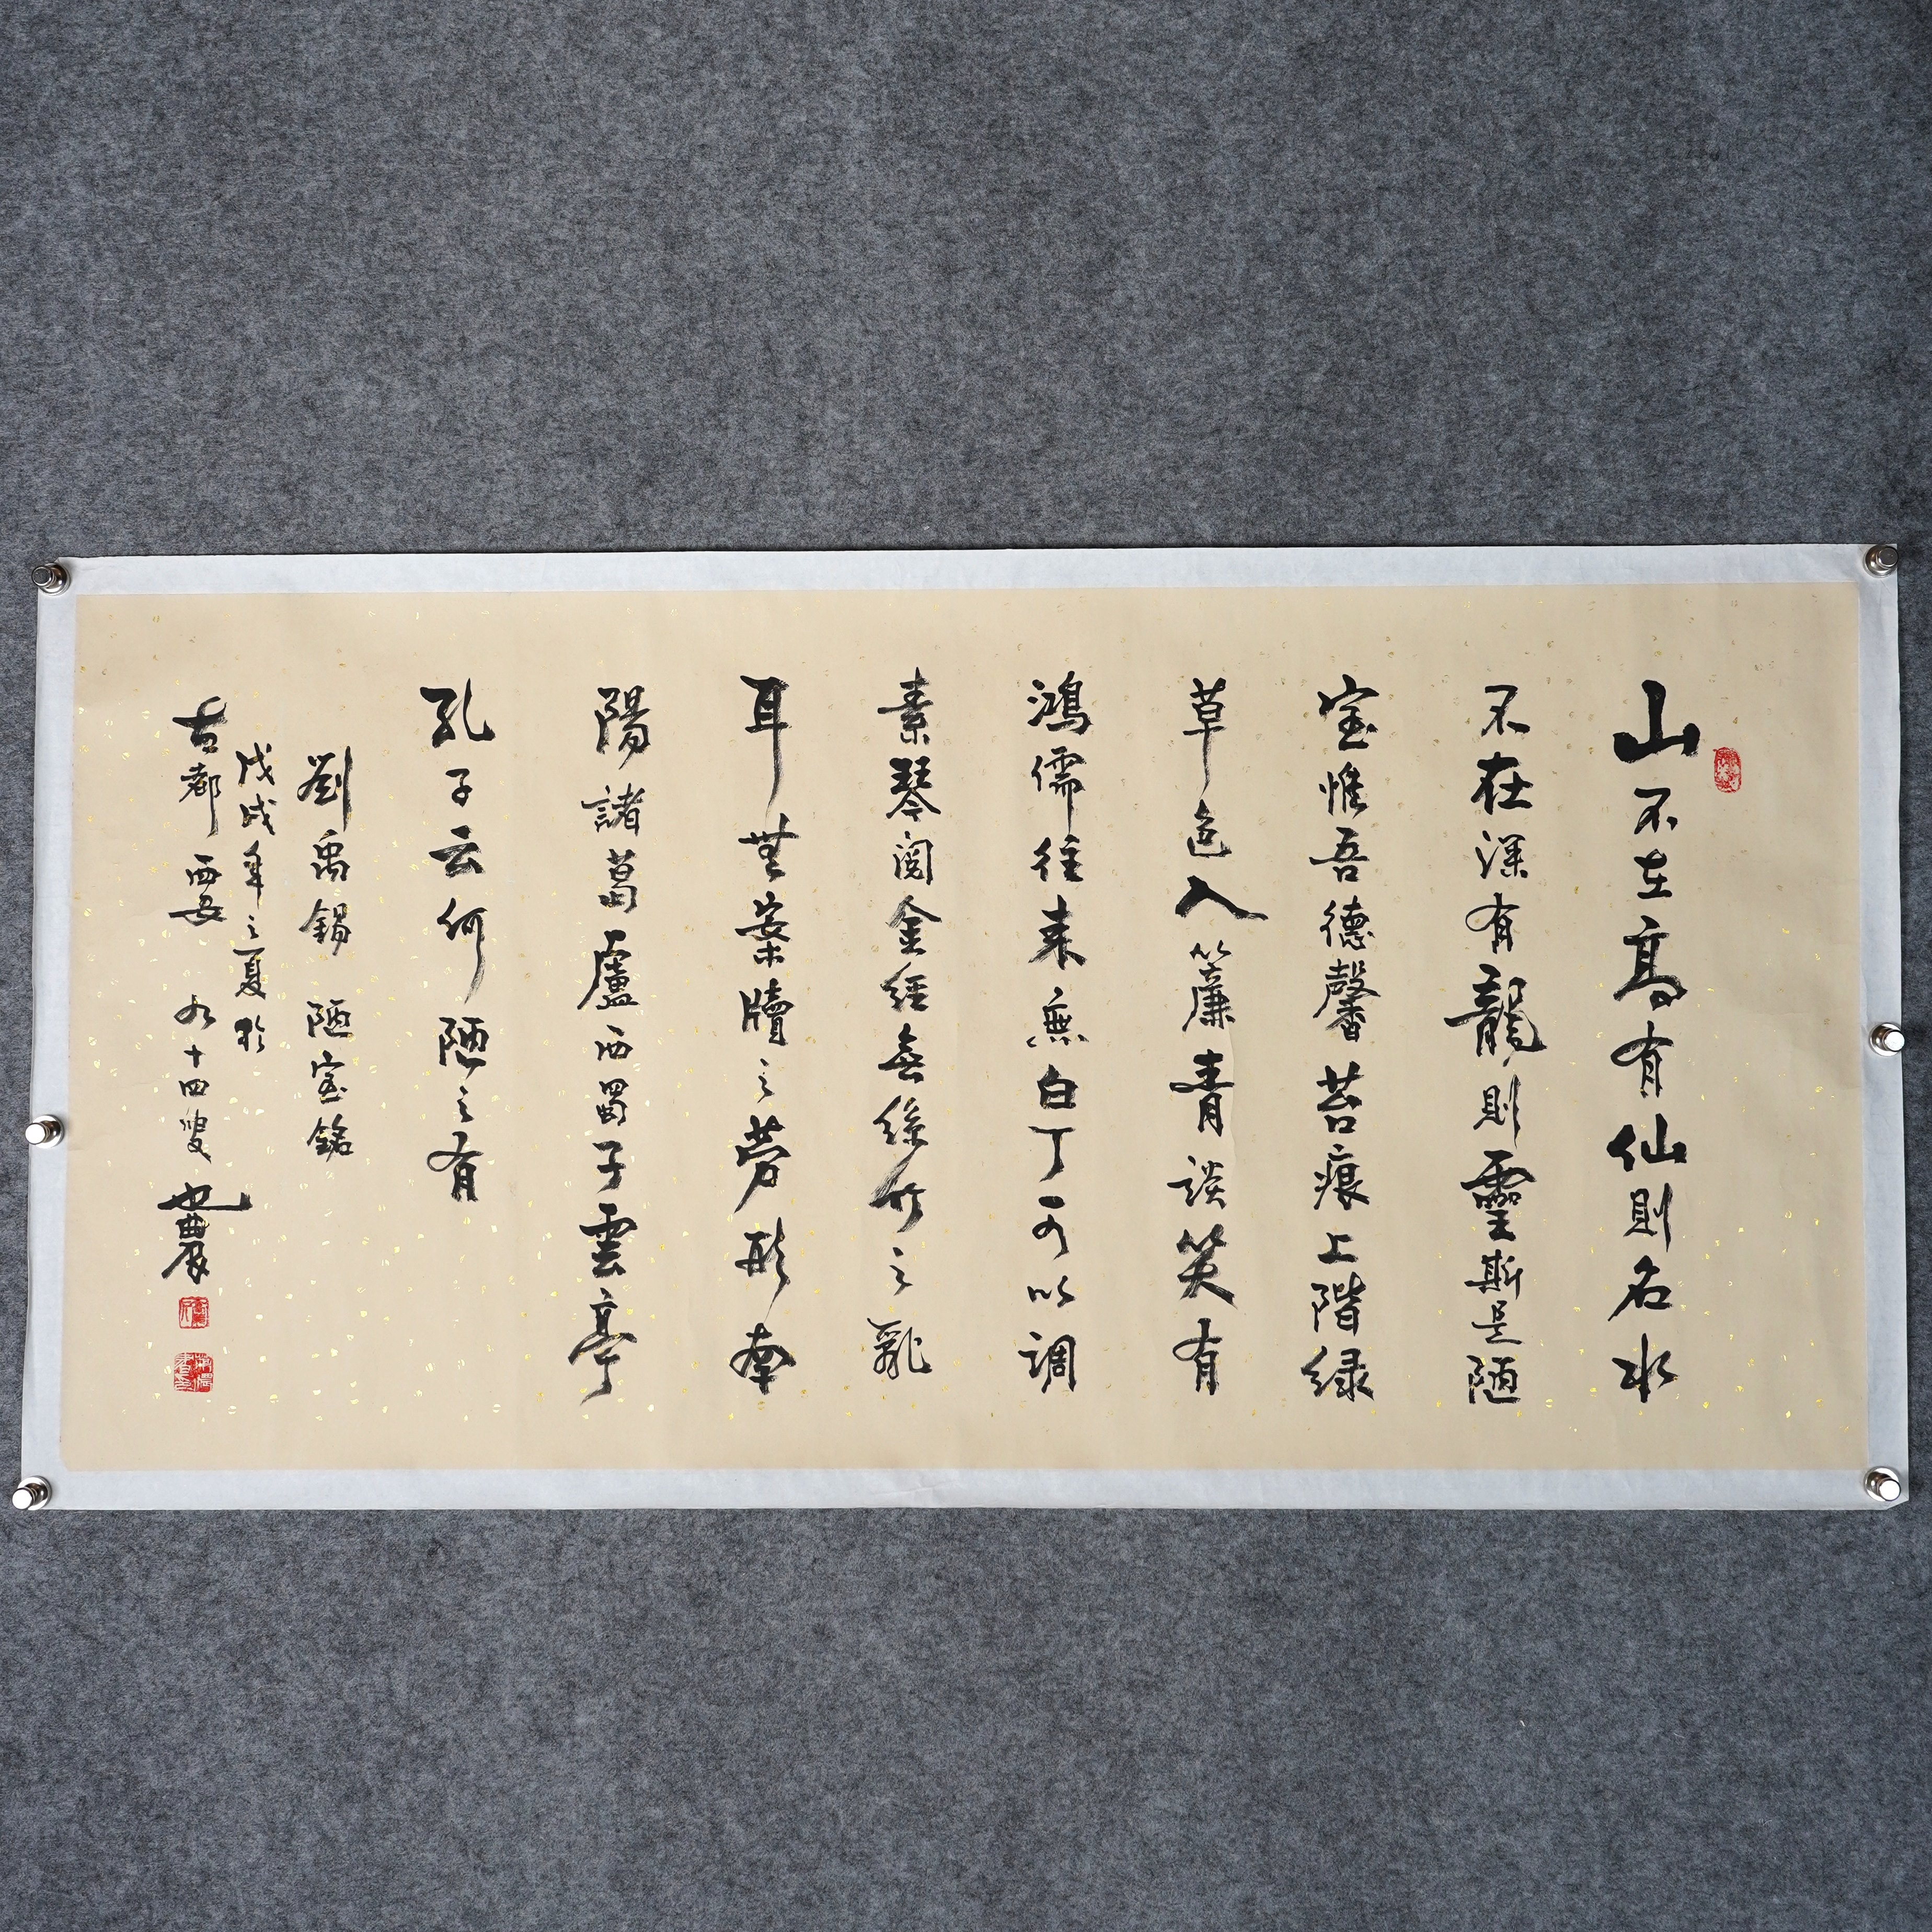 山不在高有仙則名水
不在深有龍則靈斯是陋
室惟吾德馨苔痕上階緑
草色入簾青談笑有
鴻儒往来無白丁可以調
素琴閲金經無絲竹之亂
耳無案牘之劳形南
陽諸葛廬西蜀子雲亭
孔子云何陋之有
劉禹錫 陋室銘
戊戌年之夏於
古都西安 九十四叟 也農